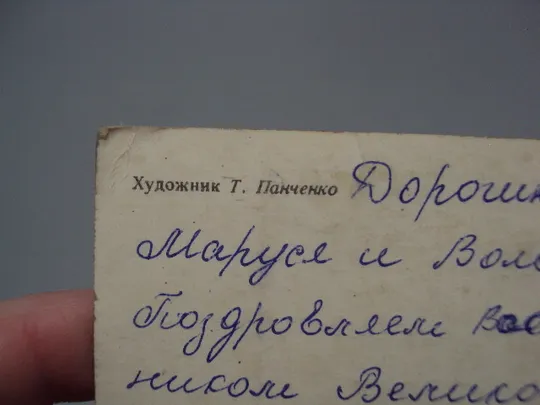 Художник Т. Панченко
Дорогие
Маруся и Воло
Поздровляем Вас
ником Велико